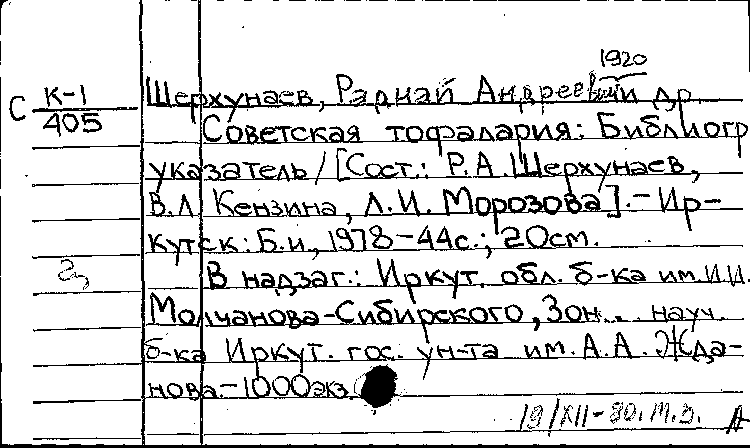 1920
С К-1 Шерхунаев, Раднай Андреевич и др.
405 Советская тофалария: Библиогр
указатель / [Сост.: Р.А. Шерхунаев,
В.Л. Кензина, Л.И. Морозова]. - Ир-
кутск: Б.и., 1978 - 44с.; 20см.
В надзаг.: Иркут. обл. б-ка им. И.И.
Молчанова-Сибирского, Зон.. науч.
б-ка Иркут. гос. ун-та им. А.А. Жда-
нова. - 1000экз
19/XII-80.